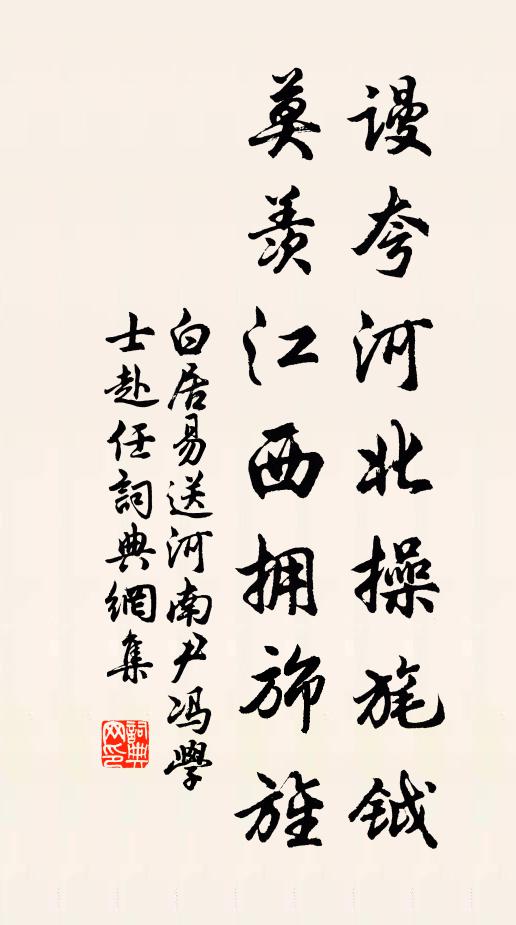 谩夸河北操旄钺
莫羡江西拥旆旌
白居易送河南尹冯學
士赴任詞典網集
詞典
网印